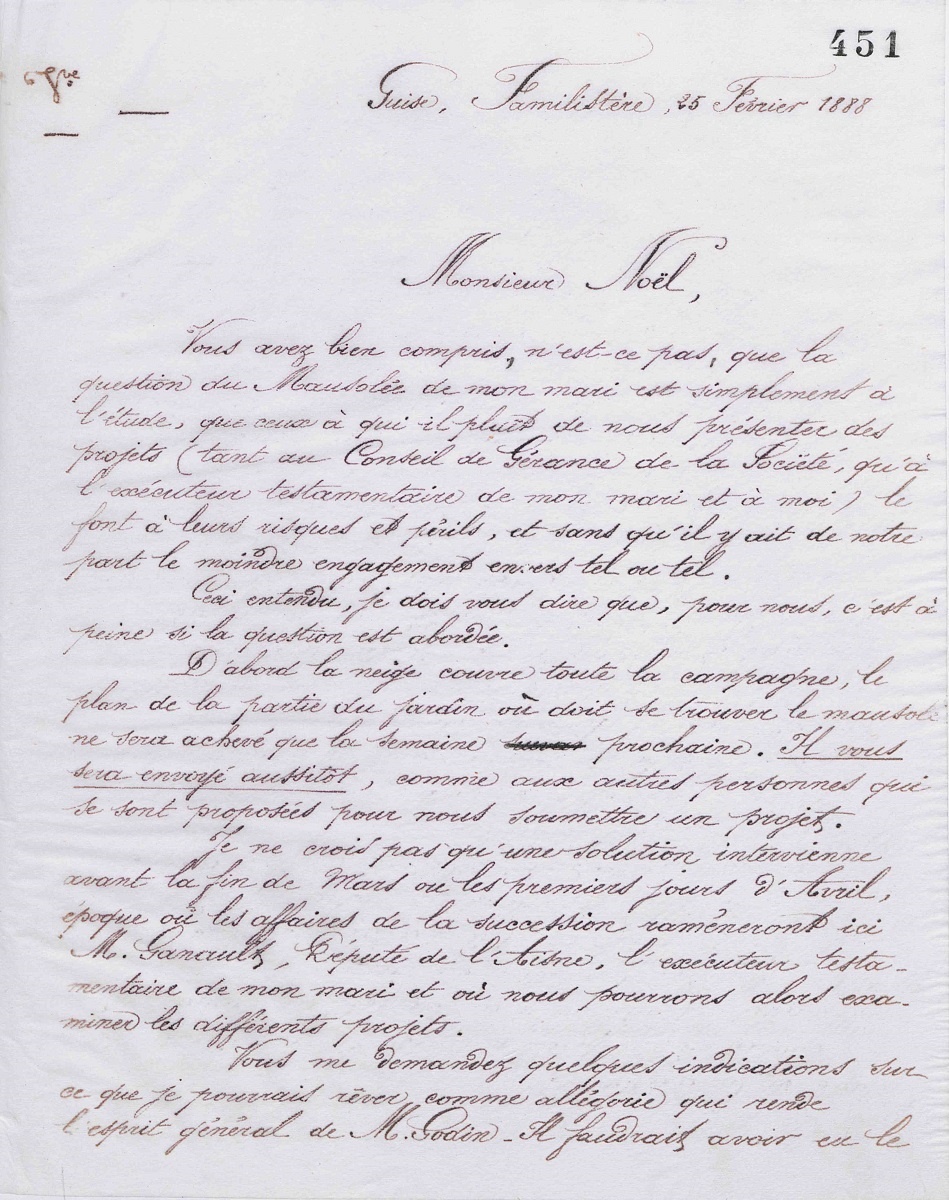 451
Gve
Guise, Familistère, 25 Février 1888
Monsieur Noël,
Vous avez bien compris, n'est-ce pas, que la
question du Mausolée de mon mari est simplement à
l'étude, que ceux à qui il plait de nous présenter des
projets (tant au Conseil de Gérance de la Société, qu'à
l'exécuteur testamentaire de mon mari et à moi) le
font à leurs risques et périls, et sans qu'il y ait de notre
part le moindre engagement envers tel ou tel.
Ceci entendu, je dois vous dire que, pour nous, c'est à
peine si la question est abordée.
D'abord la neige couvre toute la campagne, le
plan de la partie du jardin où doit se trouver le mausolé
ne sera achevé que la semaine prochaine. Il vous
sera envoyé aussitot, comme aux autres personnes qui
se sont proposées pour nous soumettre un projet.
Je ne crois pas qu'une solution intervienne
avant la fin de Mars ou les premiers jours d'Avril,
époque où les affaires de la succession ramèneront ici
M. Ganault, Député de l'Aisne, l'exécuteur testa-
mentaire de mon mari et où nous pourrons alors exa-
miner les différents projets.
Vous me demandez quelques indications sur
ce que je pourrais rêver comme allégorie qui rende
l'esprit général de M. Godin - Il faudrait avoir eu le